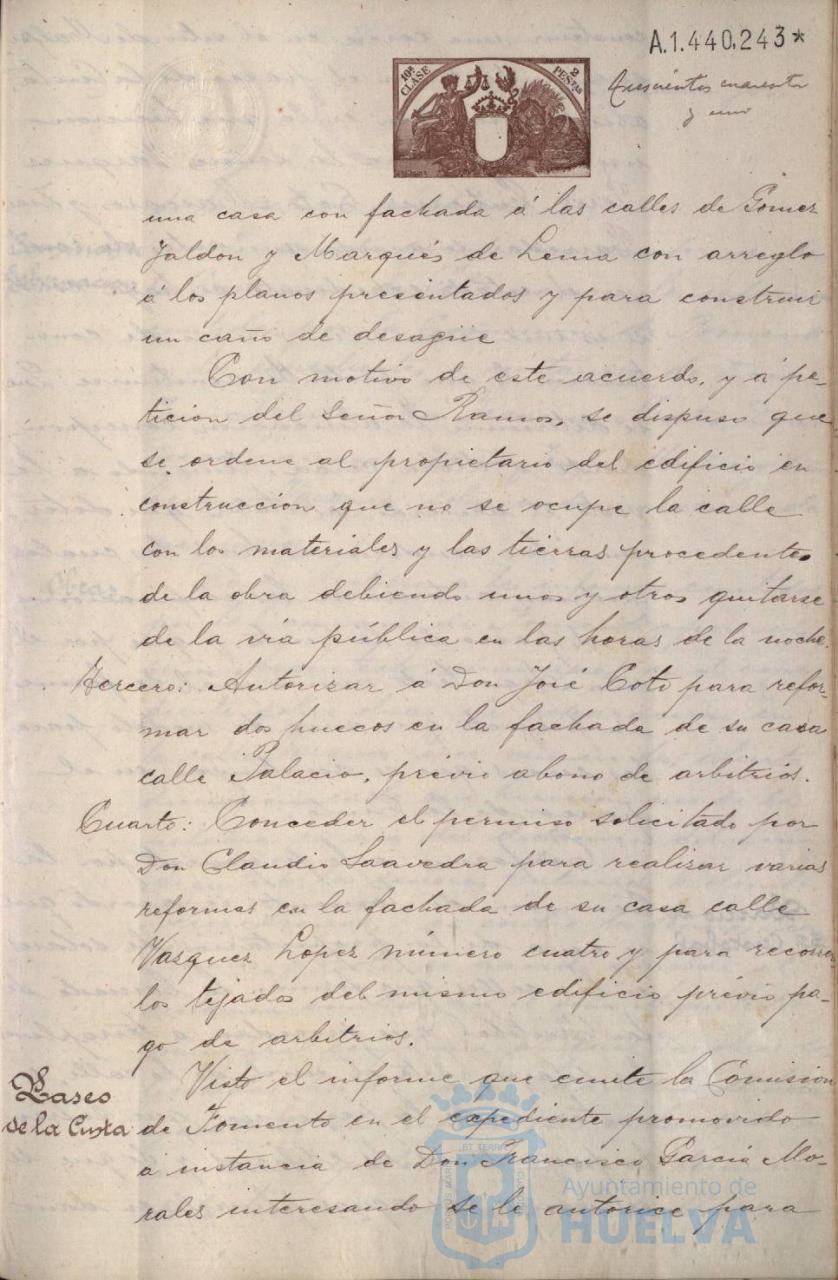 A.1.440.243*
10ª CLASE
2 PESTAS
Trescientos cuarenta
y uno
una casa con fachada á las calles de Gomez
Jaldon y Marqués de Lema con arreglo
á los planos presentados y para construir
un caño de desagüe
Con motivo de este acuerdo, y á pe-
ticion del Señor Ramos, se dispuso que
se ordene al propietario del edificio en
construccion que no se ocupe la calle
con los materiales y las tierras procedentes
de la obra debiendo unos y otros quitarse
de la vía pública en las horas de la noche.
Tercero: Autorizar á Don José Coto para refor-
mar dos huecos en la fachada de su casa
calle Palacio, prévio abono de arbitrios.
Cuarto: Conceder el permiso solicitado por
Don Claudio Saavedra para realizar varias
reformas en la fachada de su casa calle
Vazquez Lopez número cuatro y para recorrer
los tejados del mismo edificio prévio pa-
go de arbitrios.
Paseo
de la Cinta
Visto el informe que emite la Comision
de Fomento en el expediente promovido
á instancia de Don Francisco García Mo-
rales interesando se le autorice para
Ayuntamiento de
HUELVA